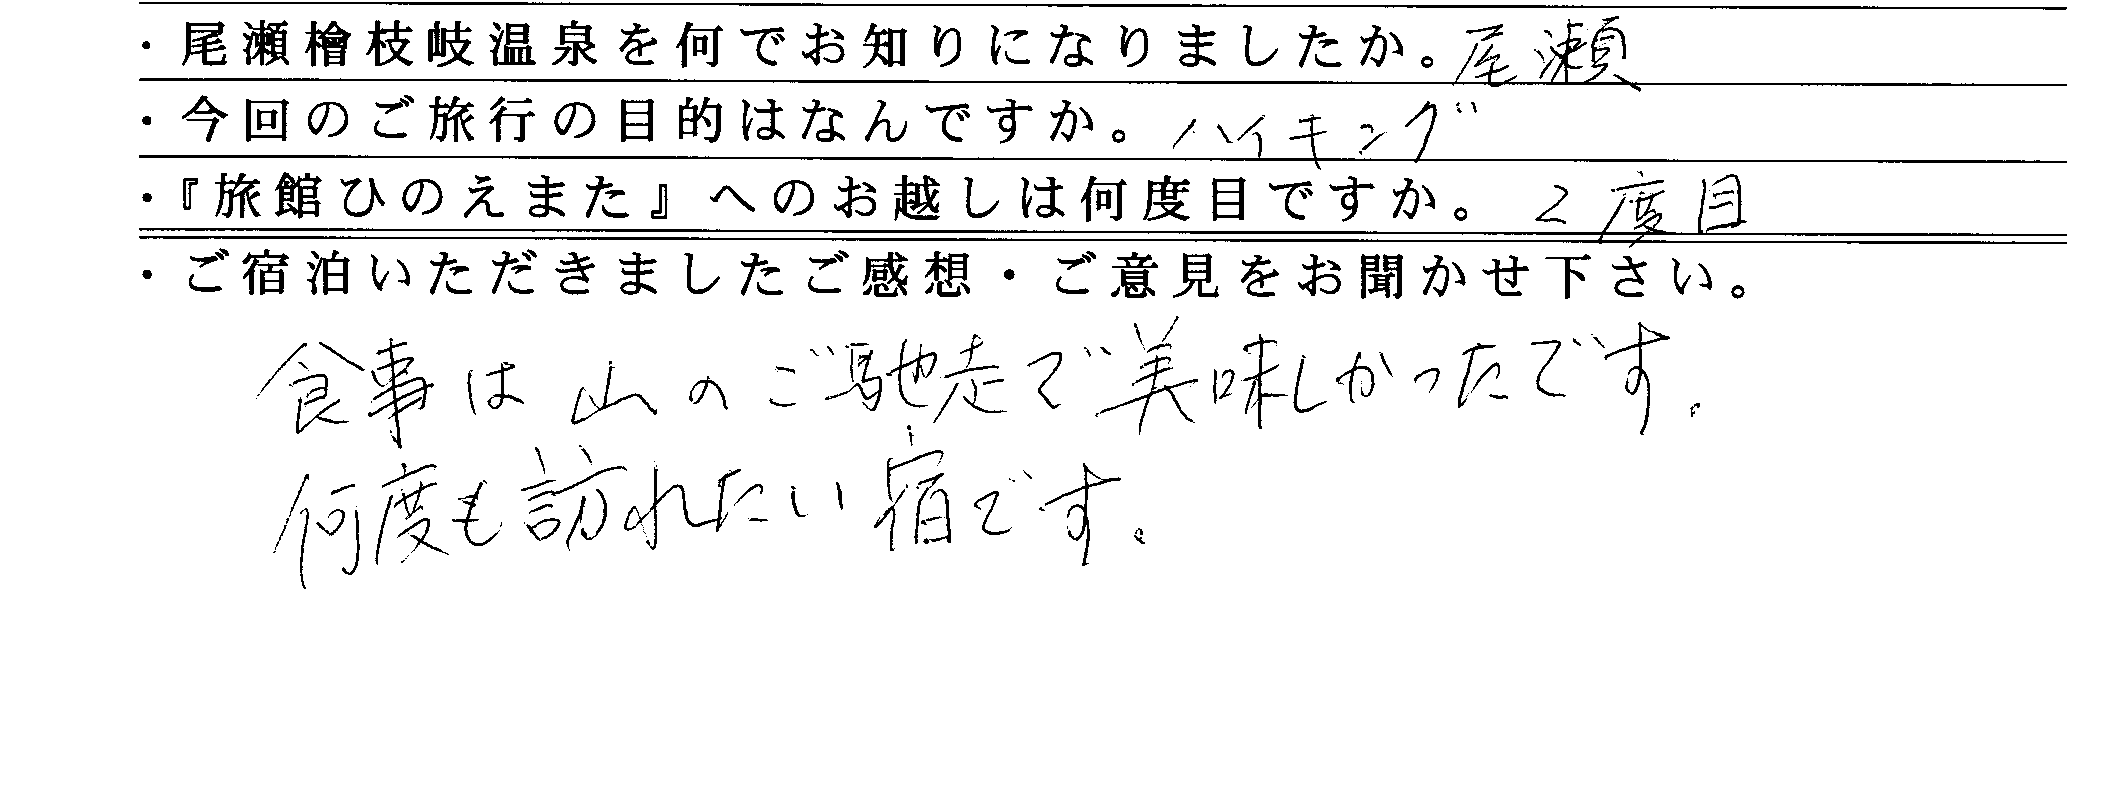 ・尾瀬檜枝岐温泉を何でお知りになりましたか。尾瀬
・今回のご旅行の目的はなんですか。ハイキング
・『旅館ひのえまた』へのお越しは何度目ですか。2度目
・ご宿泊いただきましたご感想・ご意見をお聞かせ下さい。
食事は山のご馳走で美味しかったです。
何度も訪れたい宿です。